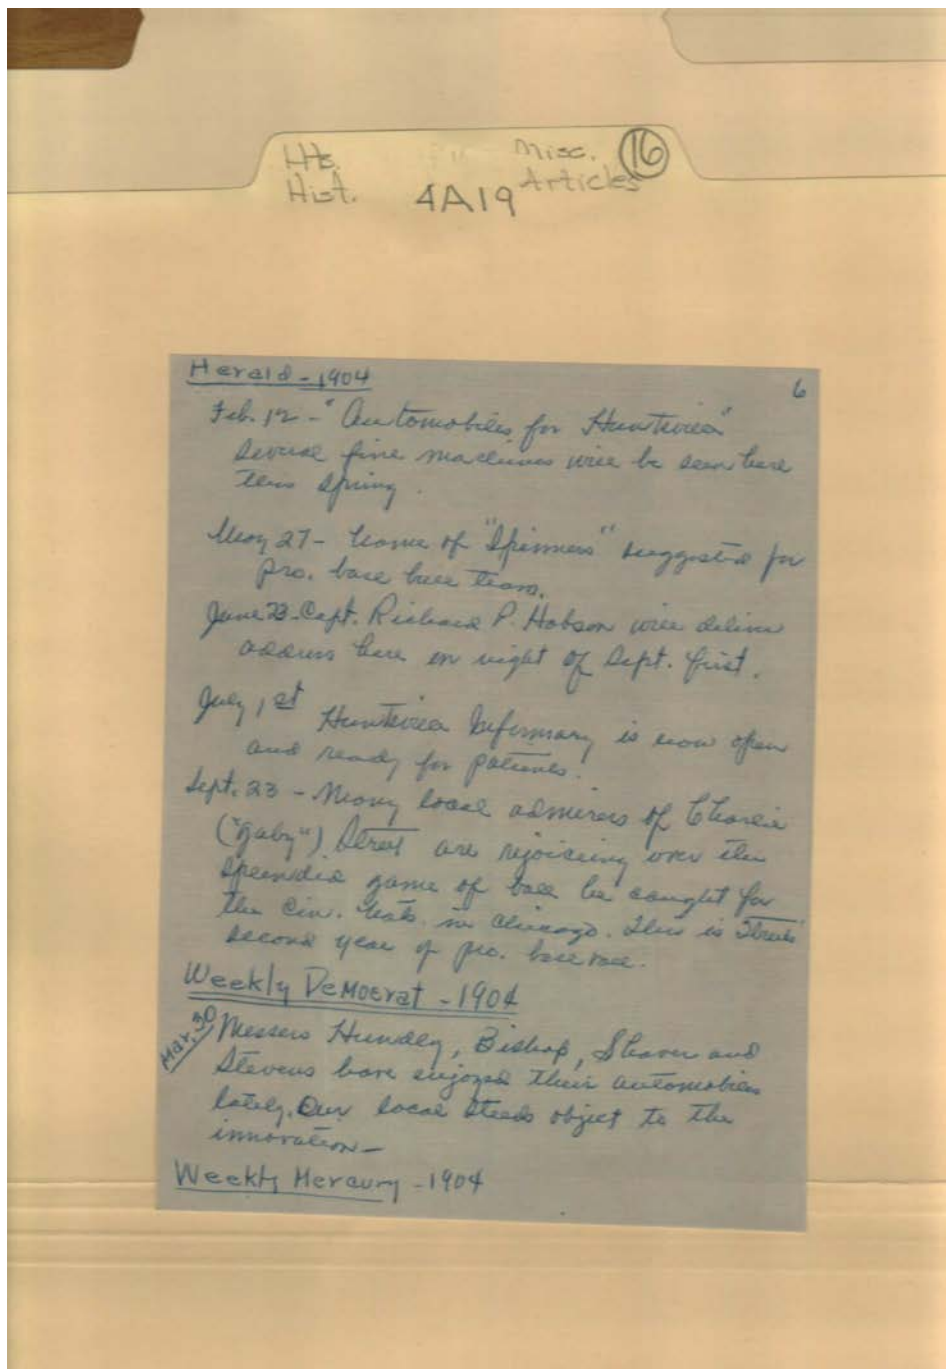 Hts. Misc. 16
Hist. 4A19 Articles
Herald - 1904 6
Feb. 12 - "Automobiles for Huntsville"
Several fine machines will be seen here
this spring.
May 27 - Name of "Spinners" suggested for
pro. base ball team.
June 23 - Capt. Richard P. Hobson will deliver
address here on night of Sept. first.
July 1st Huntsville Infirmary is now open
and ready for patients.
Sept. 23 - Many local admirers of Charlie
("Gaby") Street are rejoicing over the
splendid game of ball he caught for
the Cin. Nats. in Chicago. This is Streets'
second year of pro. base ball.
Weekly Democrat - 1904
Mar. 30 Messers Hundley, Bishop, Shaver and
Stevens have enjoyed their automobiles
lately. Our local steeds object to the
innovation -
Weekly Mercury - 1904